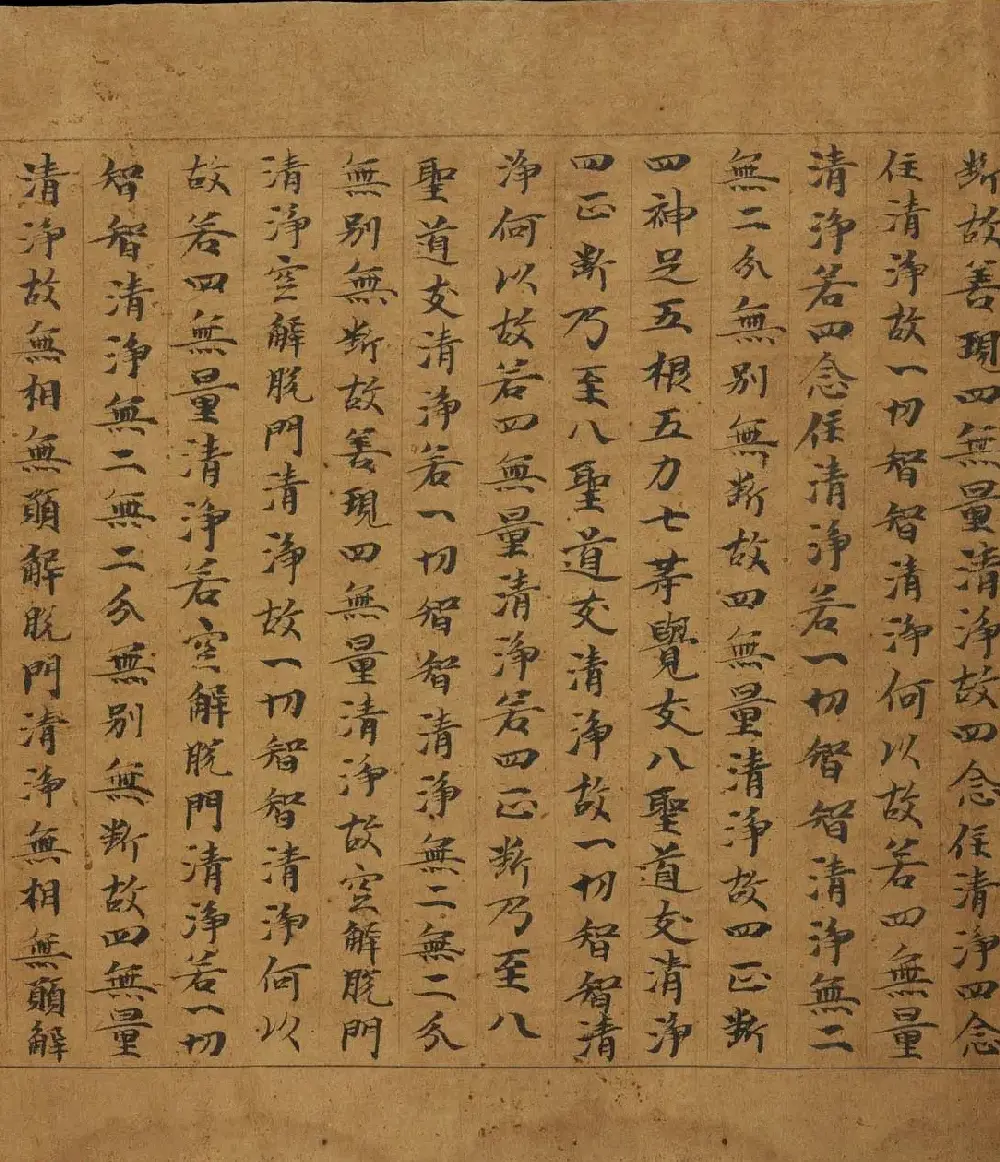 断故善現四無量清淨故四念住清淨四念
住清淨故一切智智清淨何以故若四無量
清淨若四念住清淨若一切智智清淨無二
無二分無別無断故四無量清淨故四正断
四神足五根五力七等覺支八聖道支清淨
四正断乃至八聖道支清淨故一切智智清
淨何以故若四無量清淨若四正断乃至八
聖道支清淨若一切智智清淨無二無二分
無別無断故善現四無量清淨故空解脫門
清淨空解脫門清淨故一切智智清淨何以
故若四無量清淨若空解脫門清淨若一切
智智清淨無二無二分無別無断故四無量
清淨故無相無願解脫門清淨無相無願解